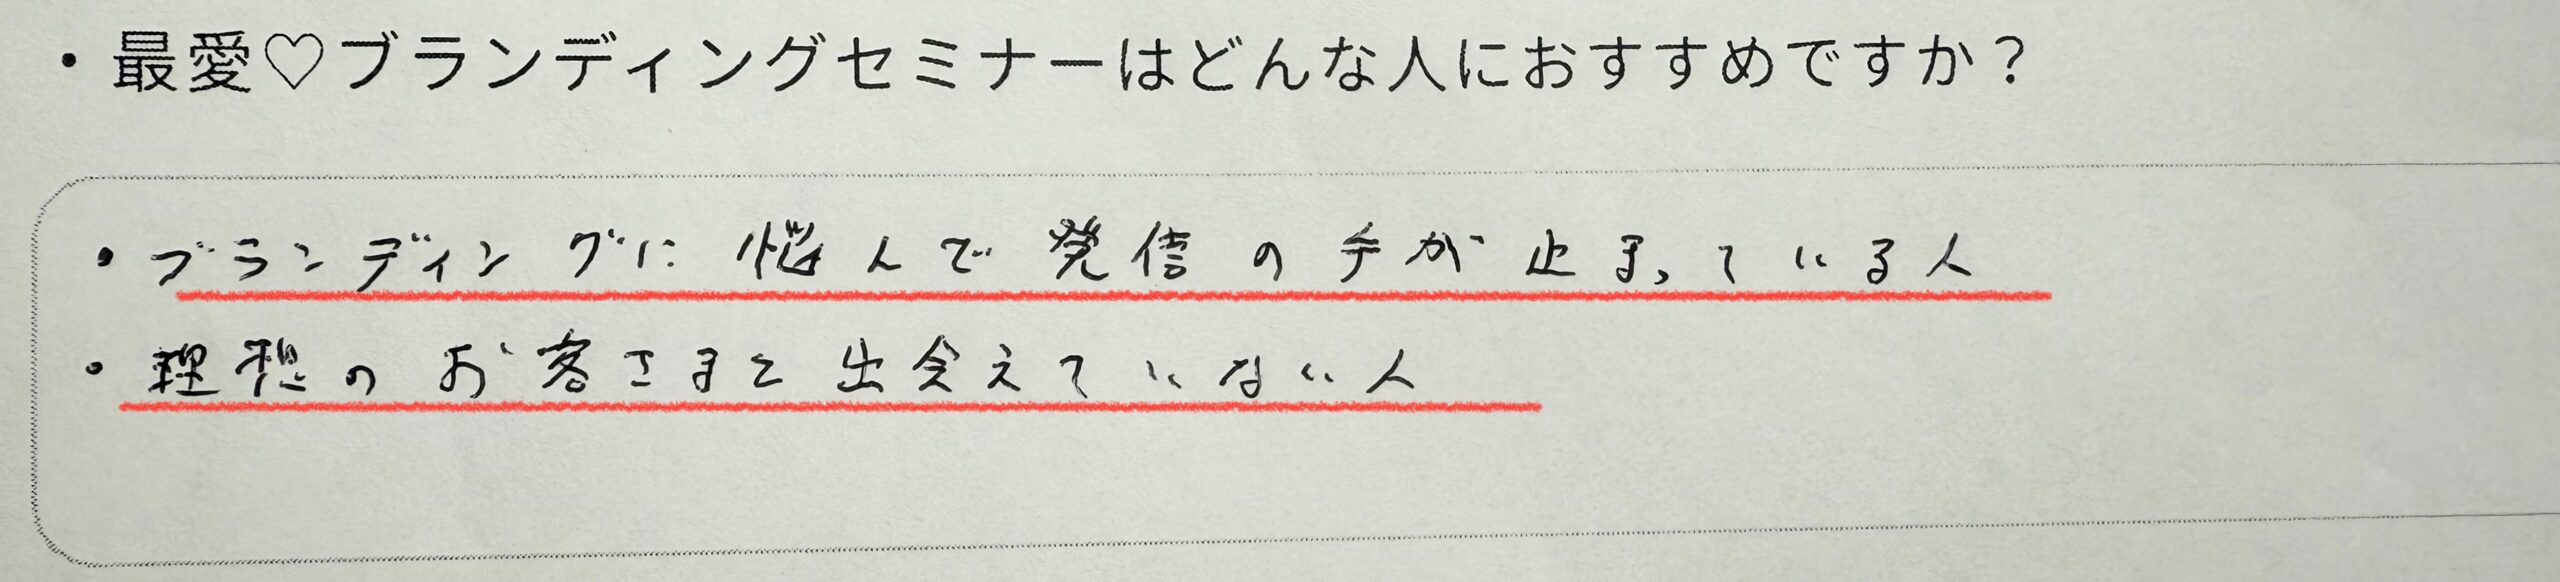 ・最愛♡ブランディングセミナーはどんな人におすすめですか？
・ブランディングに悩んで発信の手が止まっている人
・理想のお客さまと出会えていない人